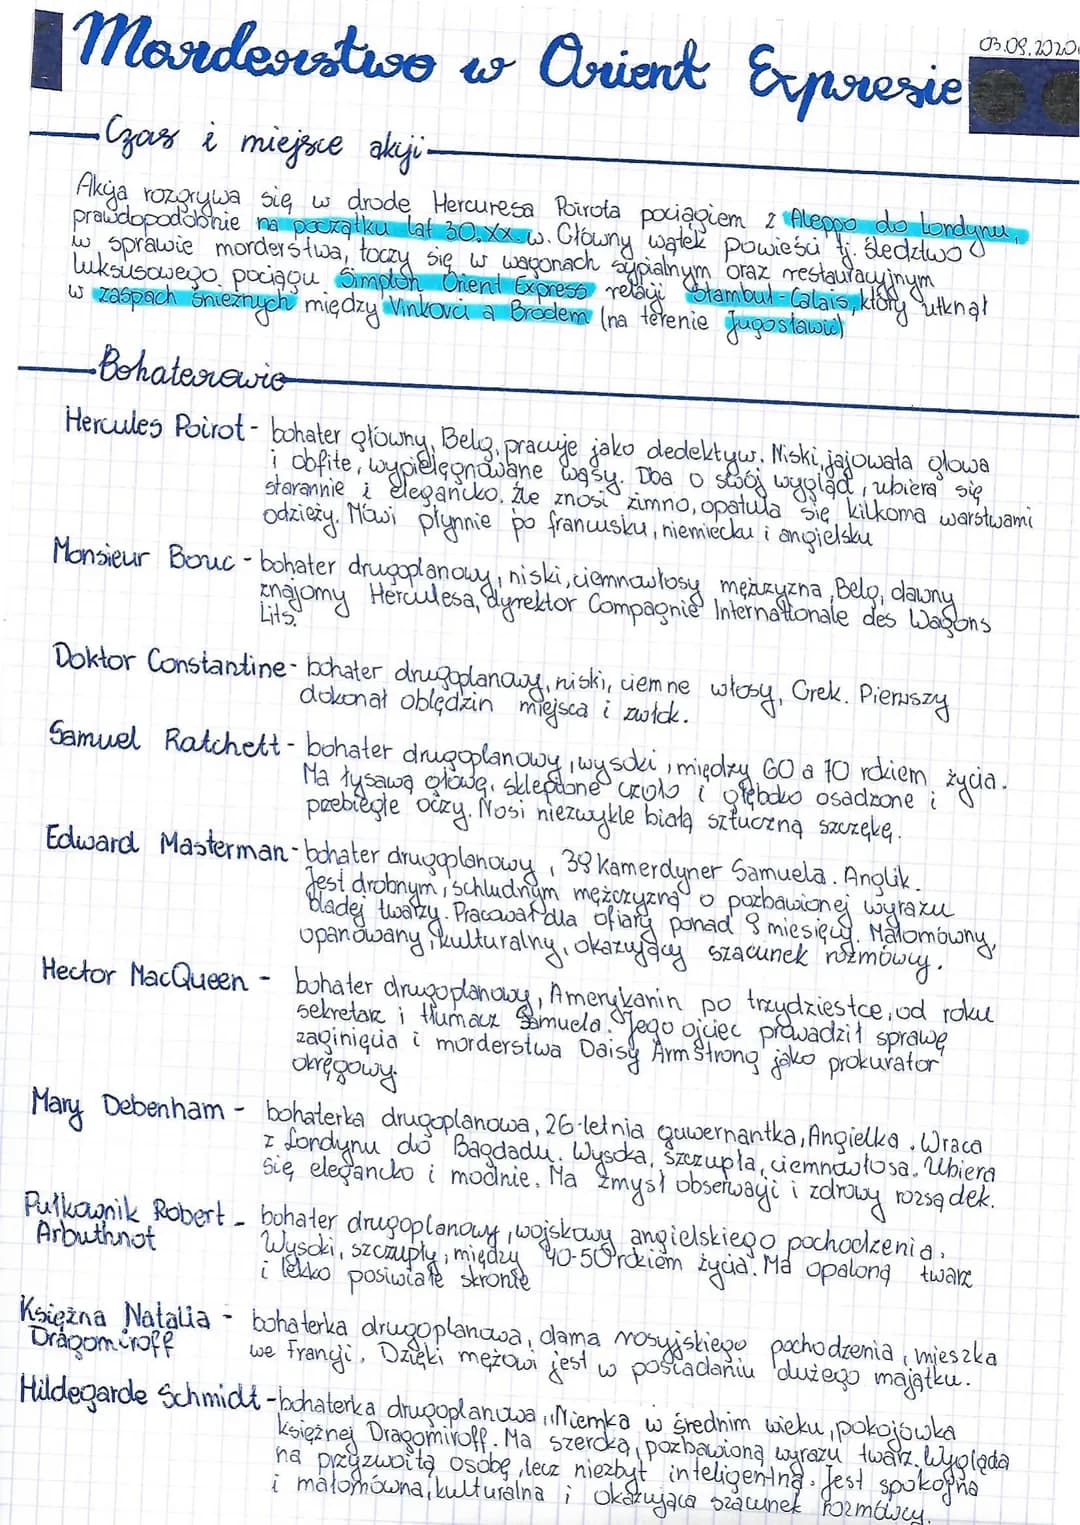 Morderstwo w Orient Expresie
03.09.2020
Czas i miejsce akcji
Akcja rozgrywa się w drodę Hercuresa Poirota pociągiem z Aleppo do Londynu,
prawdopodobnie na początku lat 30.XX.w. Główny wątek powieści tj. śledztwo
w sprawie morderstwa, toczy się w wagonach sypialnym oraz restauracyjnym
luksusowego pociągu Simplon Orient Express relacji Stambuł-Calais, który utknął
w zaspach śnieżnych między Vinkovci a Brodem (na terenie Jugosławii)
Bohaterowie
Hercules Poirot - bohater główny, Belg, pracuje jako dedektyw. Niski, jajowata głowa
i obfite, wypielęgnowane wąsy. Dba o swój wygląd, ubiera się
starannie i elegancko. Źle znosi zimno, opatula się kilkoma warstwami
odzieży. Mówi płynnie po francusku, niemiecku i angielsku
Monsieur Bouc - bohater drugoplanowy, niski, ciemnowłosy mężczyzna, Belg, dawny
znajomy Herculesa, dyrektor Compagnie Internationale des Wagons
Lits.
Doktor Constantine - bohater drugoplanowy, niski, ciemne włosy, Grek. Pierwszy
dokonał oblędzin miejsca i zwłok.
Samuel Ratchett - bohater drugoplanowy, wysoki, między 60 a 70 rokiem życia.
Ma łysawą głowę, sklepione czoło i głęboko osadzone i
przebiegłe oczy. Nosi niezwykle białą sztuczną szczękę.
Edward Masterman - bohater drugoplanowy, 39 kamerdyner Samuela. Anglik.
Jest drobnym, schludnym mężczyzną o pozbawionej wyrazu
bladej twarzy. Pracował dla ofiary ponad 9 miesięcy. Małomówny,
opanowany, kulturalny, okazujący szacunek rozmówcy.
Hector MacQueen - bohater drugoplanowy, Amerykanin po trzydziestce, od roku
sekretarz i tłumacz Samuela. Jego ojciec prowadził sprawę
zaginięcia i morderstwa Daisy Armstrong jako prokurator
okręgowy.
Mary Debenham - bohaterka drugoplanowa, 26-letnia guwernantka, Angielka. Wraca
z Londynu do Bagdadu. Wysoka, szczupła, ciemnowłosa. Ubiera
się elegancko i modnie. Ma zmysł obserwacji i zdrowy rozsądek.
Pułkownik Robert - bohater drugoplanowy, wojskowy angielskiego pochodzenia.
Arbuthnot Wysoki, szczupły, między 40-50 rokiem życia. Ma opaloną twarz
i lekko posiwiałe skronie
Księżna Natalia - bohaterka drugoplanowa, dama rosyjskiego pochodzenia, mieszka
Dragomiroff we Francji. Dzięki mężowi jest w posiadaniu dużego majątku.
Hildegarde Schmidt - bohaterka drugoplanowa, Niemka w średnim wieku, pokojówka
księżnej Dragomiroff. Ma szeroką, pozbawioną wyrazu twarz. Wygląda
na przyzwoitą osobę, lecz niezbyt inteligentną. Jest spokojna
i małomówna, kulturalna i okazująca szacunek rozmówcy.